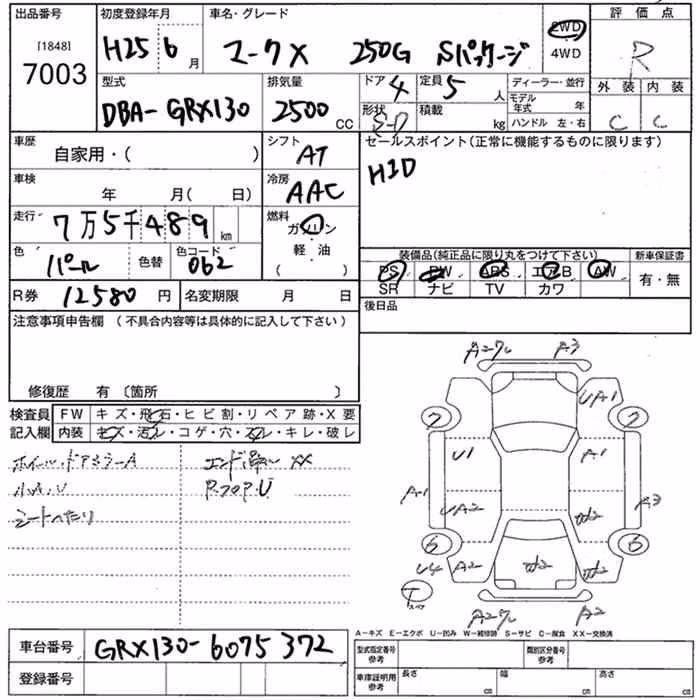 出品番号 初度登録年月 車名・グレード 評価点
[1848] 7003 H25 6月 マークX 250G Sパッケージ 2WD 4WD R
型式 排気量 ドア 4 定員 5人 ディーラー・並行 外装 内装
DBA-GRX130 2500CC 形状 S-D 積載 kg モデル年式 年 ハンドル 左・右 C C
車歴 自家用・( ) シフト AT セールスポイント(正常に機能するものに限ります)
車検 年 月( 日) 冷房 AAC HID
走行 7万5千489km 燃料 ガソリン 軽・油 ( )
色 パール 色替 色コード 062 装備品(純正品に限り丸をつけて下さい) 新車保証書
PS PW ABS エアB AW 有・無
SR ナビ TV カワ
R券 12580円 名変期限 月 日 後日品
注意事項申告欄(不具合内容等は具体的に記入して下さい)
修復歴 有〔箇所 〕
検査員 FW キズ・飛石・ヒビ割・リペア跡・X要
記入欄 内装 キズ・汚レ・コゲ・穴・スレ・キレ・破レ
ホイール.ドアミラーA エンド XX
小A.U R.フロアU
シートへたり
A A3
7 UA1 7
U1 A1
A1 UA2 W2 A3
6 6
U4 A2 W2 W2
T スペア
A A2
A-キズ E-エクボ U-凹み W-補修跡 S-サビ C-腐食 XX-交換済
車台番号 GRX130-6075372 型式指定番号 参考 類別区分番号 参考
登録番号 車庫証明用 参考 長さ cm 幅 cm 高さ cm